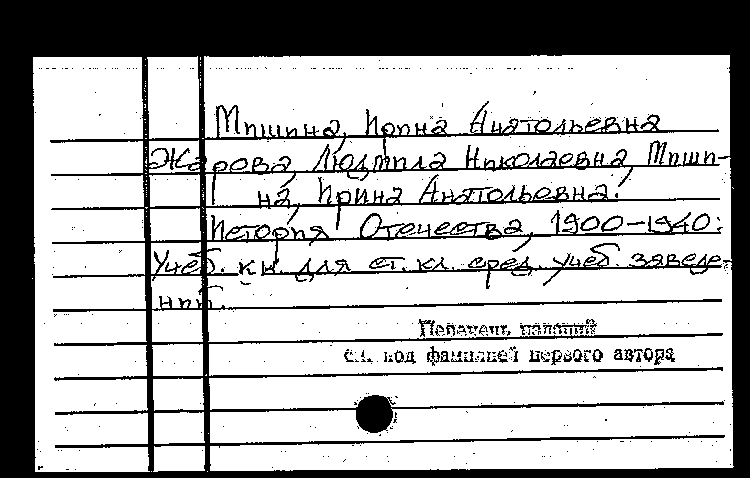 Мишина, Ирина Анатольевна
Жарова, Людмила Николаевна, Миши-
на, Ирина Анатольевна.
История Отечества, 1900-1940:
Учеб. кн. для ст. кл. сред. учеб. заведе-
ний.
Перечень изданий
см. под фамилией первого автора